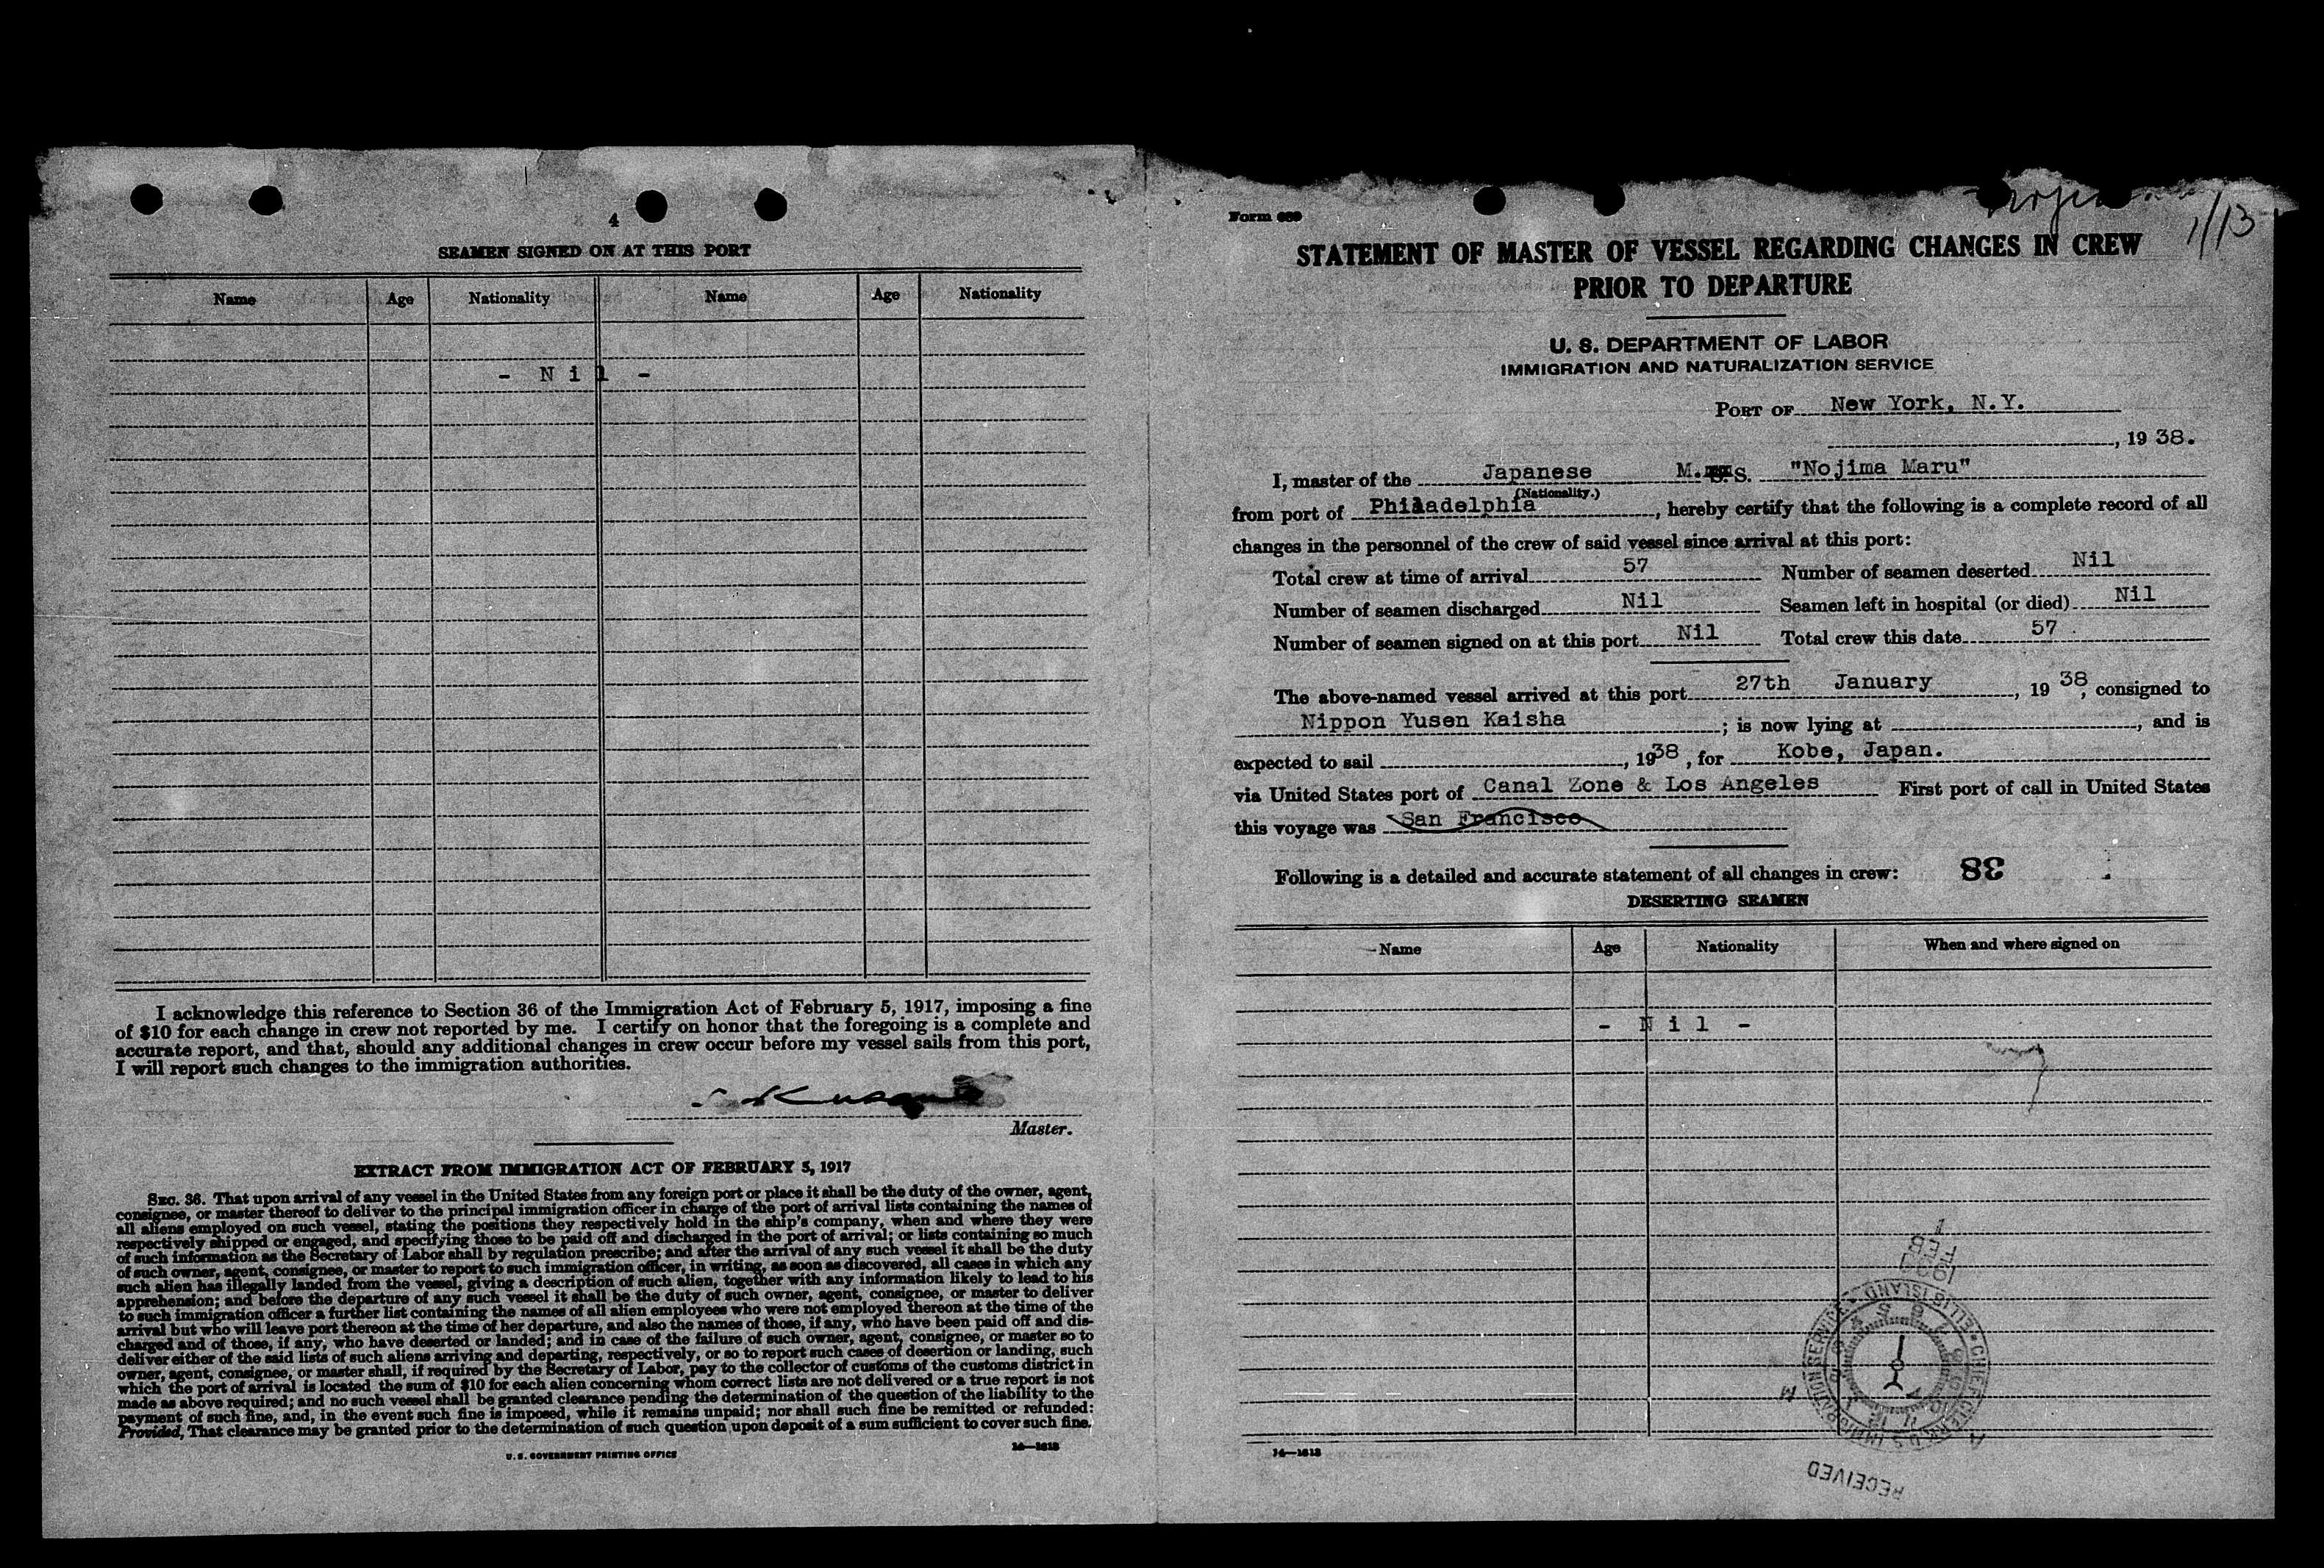 4
SEAMEN SIGNED ON AT THIS PORT
Name Age Nationality Name Age Nationality
- Nil -
I acknowledge this reference to Section 36 of the Immigration Act of February 5, 1917, imposing a fine
of $10 for each change in crew not reported by me. I certify on honor that the foregoing is a complete and
accurate report, and that, should any additional changes in crew occur before my vessel sails from this port,
I will report such changes to the immigration authorities.
Master.
EXTRACT FROM IMMIGRATION ACT OF FEBRUARY 5, 1917
SEC. 36. That upon arrival of any vessel in the United States from any foreign port or place it shall be the duty of the owner, agent,
consignee, or master thereof to deliver to the principal immigration officer in charge of the port of arrival lists containing the names of
all aliens employed on such vessel, stating the positions they respectively hold in the ship's company, when and where they were
respectively shipped or engaged, and specifying those to be paid off and discharged in the port of arrival; or lists containing so much
of such information as the Secretary of Labor shall by regulation prescribe; and after the arrival of any such vessel it shall be the duty
of such owner, agent, consignee, or master to report to such immigration officer, in writing, as soon as discovered, all cases in which any
such alien has illegally landed from the vessel, giving a description of such alien, together with any information likely to lead to his
apprehension; and before the departure of any such vessel it shall be the duty of such owner, agent, consignee, or master to deliver
to such immigration officer a further list containing the names of all alien employees who were not employed thereon at the time of the
arrival but who will leave port thereon at the time of her departure, and also the names of those, if any, who have been paid off and dis-
charged and of those, if any, who have deserted or landed; and in case of the failure of such owner, agent, consignee, or master so to
deliver either of the said lists of such aliens arriving and departing, respectively, or so to report such cases of desertion or landing, such
owner, agent, consignee, or master shall, if required by the Secretary of Labor, pay to the collector of customs of the customs district in
which the port of arrival is located the sum of $10 for each alien concerning whom correct lists are not delivered or a true report is not
made as above required; and no such vessel shall be granted clearance pending the determination of the question of the liability to the
payment of such fine, and, in the event such fine is imposed, while it remains unpaid; nor shall such fine be remitted or refunded:
Provided, That clearance may be granted prior to the determination of such question upon deposit of a sum sufficient to cover such fine.
U. S. GOVERNMENT PRINTING OFFICE 14—1613
1/13
Form 689
STATEMENT OF MASTER OF VESSEL REGARDING CHANGES IN CREW
PRIOR TO DEPARTURE
U. S. DEPARTMENT OF LABOR
IMMIGRATION AND NATURALIZATION SERVICE
PORT OF New York, N.Y.
, 19 38.
I, master of the Japanese M. S. "Nojima Maru"
(Nationality.)
from port of Philadelphia, hereby certify that the following is a complete record of all
changes in the personnel of the crew of said vessel since arrival at this port:
Total crew at time of arrival 57 Number of seamen deserted Nil
Number of seamen discharged Nil Seamen left in hospital (or died) Nil
Number of seamen signed on at this port Nil Total crew this date 57
The above-named vessel arrived at this port 27th January, 19 38, consigned to
Nippon Yusen Kaisha; is now lying at , and is
expected to sail , 19 38, for Kobe, Japan.
via United States port of Canal Zone & Los Angeles First port of call in United States
this voyage was San Francisco
Following is a detailed and accurate statement of all changes in crew:
DESERTING SEAMEN
Name Age Nationality When and where signed on
- Nil -
CHIEF CLERK U.S. IMMIGRATION SERVICE ELLIS ISLAND
RECEIVED
14—1613